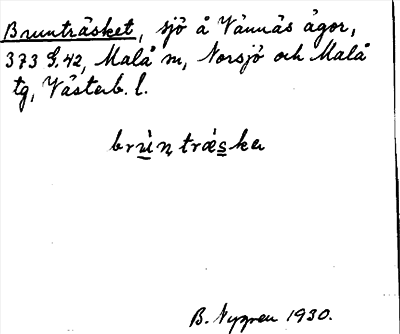 Brunträsket, sjö å Vännäs ägor,
373 G. 42, Malå m, Norsjö och Malå
tg, Västerb. l.
brùn̥träska
B. Nygren 1930.